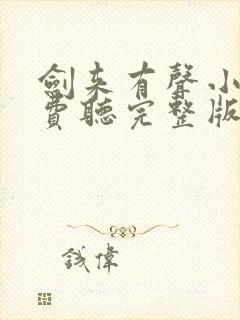 劍来有聲小
費聽完整版
錢偉